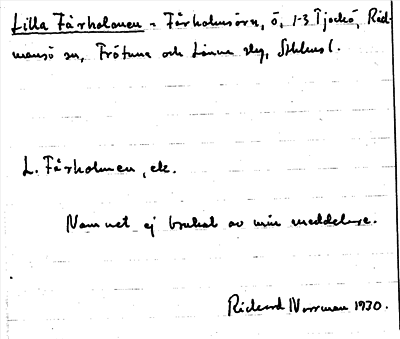 Lilla Fårholmen = Fårholmsörn, ö, 1-3 Tjockö, Råd-
mansö sn, Frötuna och Länna slg, Sthlms l.
L. Fårholmen, ek.
Namnet ej brukat av min meddelare.
Rickard Norrman 1930.